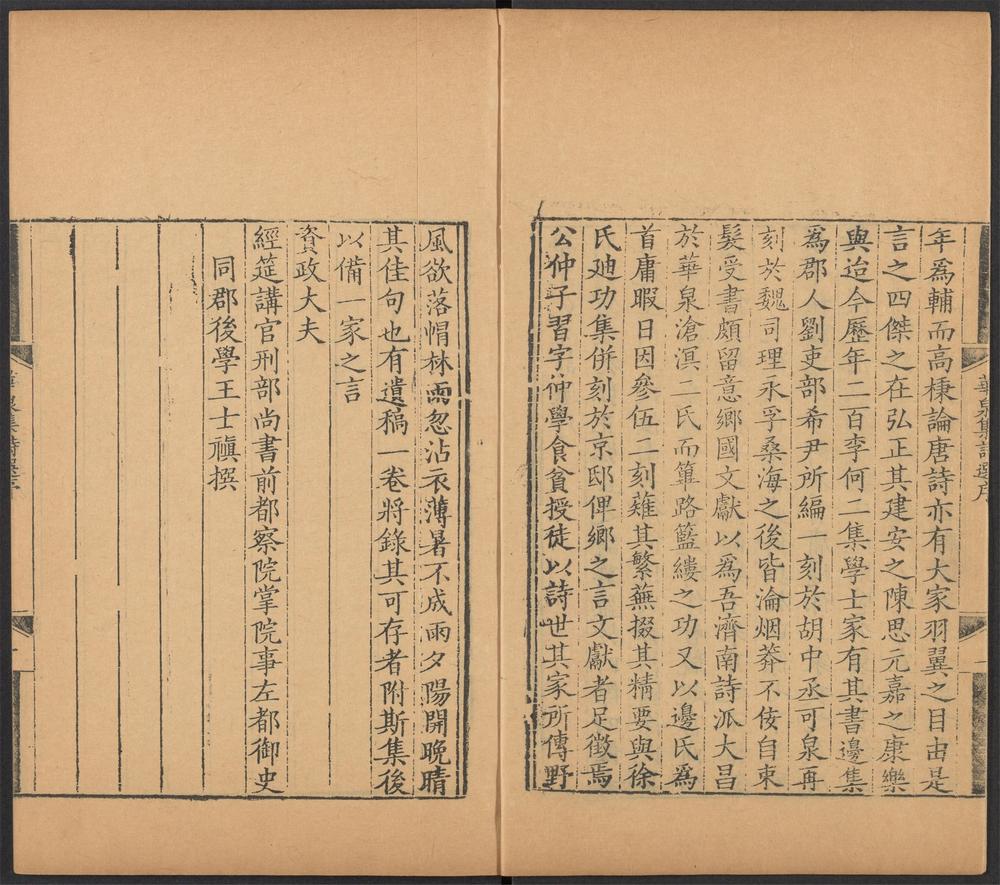 年爲輔而高棅論唐詩亦有大家羽翼之目由是
言之四傑之在弘正其建安之陳思元嘉之康樂
與迨今歷年二百李何二集學士家有其書邊集
爲郡人劉吏部希尹所編一刻於胡中丞可泉再
刻於魏司理永孚桑海之後皆淪烟莽不佞自束
髮受書頗留意鄉國文獻以爲吾濟南詩派大昌
於華泉滄溟二氏而篳路籃縷之功又以邊氏爲
首庸暇日因參伍二刻薙其繁蕪掇其精要與徐
氏廸功集併刻於京邸俾鄉之言文獻者足徵焉
公仲子習字仲學食貧授徒以詩世其家所傳野
風欲落帽林雨忽沾衣薄暑不成雨夕陽開晚晴
其佳句也有遺稿一卷將錄其可存者附斯集後
以備一家之言
資政大夫
經筵講官刑部尚書前都察院掌院事左都御史
同郡後學王士禛撰